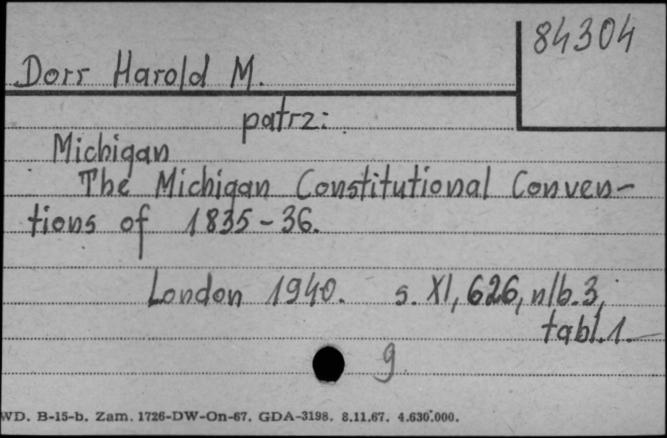 84304
Dorr Harold M.
patrz:
Michigan
The Michigan Constitutional Conven-
tions of 1835-36.
London 1940. s. XI, 626, nlb. 3,
tabl. 1.
g
WD. B-15-b. Zam. 1726-DW-On-67. GDA-3198. 8.11.67. 4.630.000.